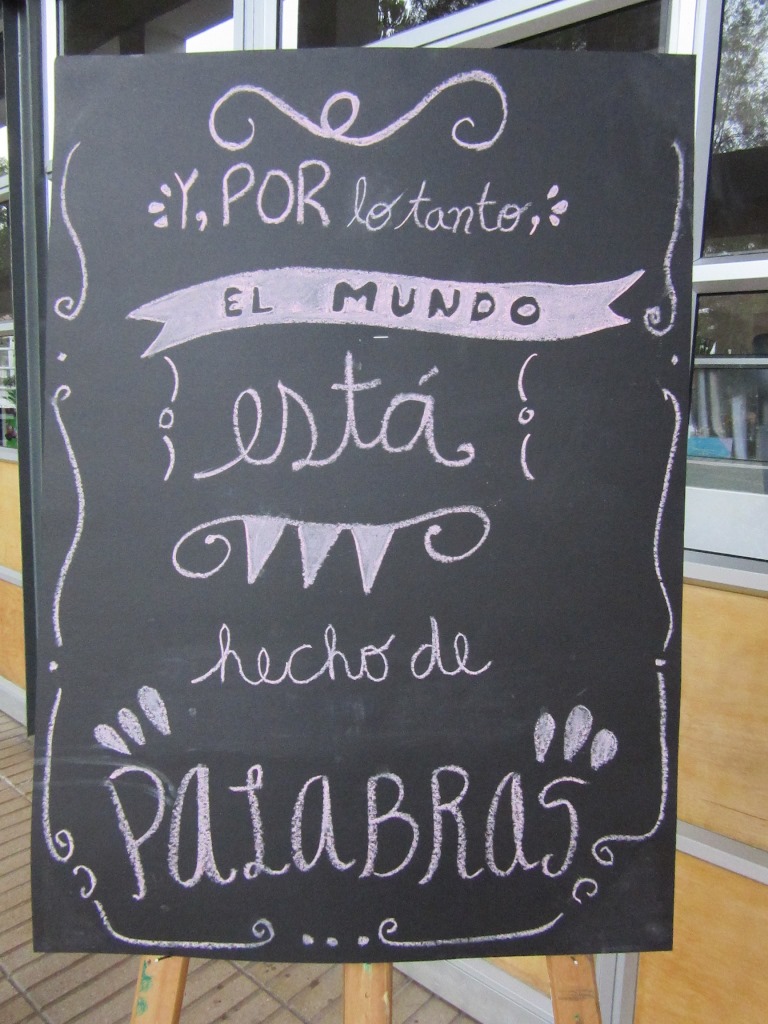 Y, POR lo tanto,
EL MUNDO
está
hecho de
PALABRAS